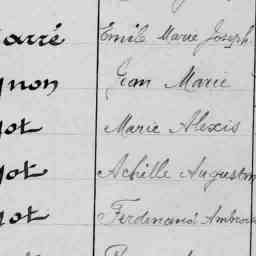 arré Emile Marie Joseph
gnon Jean Marie
got Marie Alexis
got Achille Augustin
got Ferdinand Ambroise